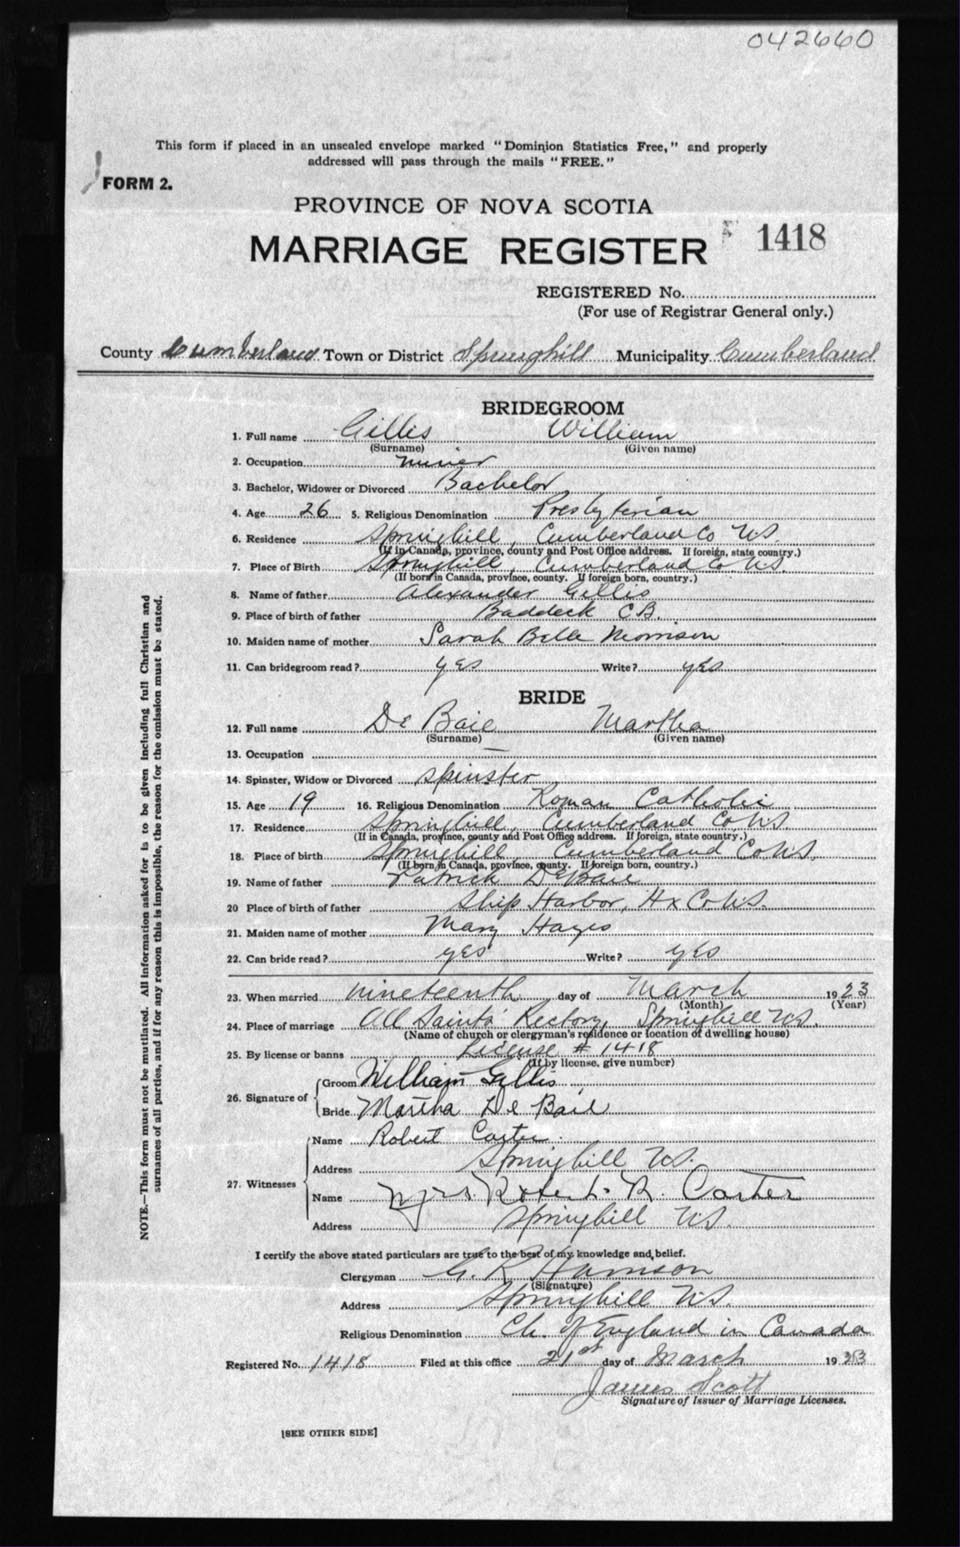 042660
This form if placed in an unsealed envelope marked "Dominion Statistics Free," and properly
addressed will pass through the mails "FREE."
FORM 2.
PROVINCE OF NOVA SCOTIA
MARRIAGE REGISTER 1418
REGISTERED No.
(For use of Registrar General only.)
County Cumberland Town or District Springhill Municipality Cumberland
BRIDEGROOM
1. Full name Gillis William
(Surname) (Given name)
2. Occupation miner
3. Bachelor, Widower or Divorced Bachelor
4. Age 26 5. Religious Denomination Presbyterian
6. Residence Springhill, Cumberland Co N.S.
(If in Canada, province, county and Post Office address. If foreign, state country.)
7. Place of Birth Springhill, Cumberland Co N.S.
(If born in Canada, province, county. If foreign born, country.)
8. Name of father Alexander Gillis
9. Place of birth of father Baddeck C.B.
10. Maiden name of mother Sarah Bella Morrison
11. Can bridegroom read? yes Write? yes
BRIDE
12. Full name De Baie Martha
(Surname) (Given name)
13. Occupation —
14. Spinster, Widow or Divorced spinster
15. Age 19 16. Religious Denomination Roman Catholic
17. Residence Springhill, Cumberland Co N.S
(If in Canada, province, county and Post Office address. If foreign, state country.)
18. Place of birth Springhill, Cumberland Co N.S.
(If born in Canada, province, county. If foreign born, country.)
19. Name of father Patrick De Baie
20 Place of birth of father Ship Harbor, Hx Co N.S.
21. Maiden name of mother Mary Hayes
22. Can bride read? yes Write? yes
23. When married nineteenth day of March 1923
(Month) (Year)
24. Place of marriage All Saints' Rectory, Springhill N.S.
(Name of church or clergyman's residence or location of dwelling house)
25. By license or banns License # 1418
(If by license, give number)
26. Signature of Groom William Gillis
Bride Martha De Baie
27. Witnesses Name Robert Carter
Address Springhill N.S.
Name Mrs. Robert R. Carter
Address Springhill N.S.
I certify the above stated particulars are true to the best of my knowledge and belief.
Clergyman G. R. Harrison
(Signature)
Address Springhill N.S.
Religious Denomination Ch. of England in Canada
Registered No. 1418 Filed at this office 21st day of March 1923
James Scott
Signature of Issuer of Marriage Licenses.
[SEE OTHER SIDE]
NOTE.—This form must not be mutilated. All information asked for is to be given including full Christian and
surnames of all parties, and if for any reason this is impossible, the reason for the omission must be stated.